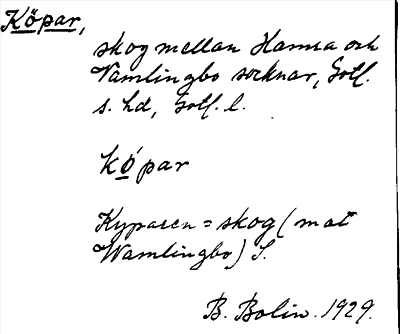 Köpar,
skog mellan Hamra och
Vamlingbo socknar, Gotl.
s. hd, Gotl. l.
kǫ́par
Kyparen = skog (mot
Wamlingbo) S.
B. Bolin. 1929.